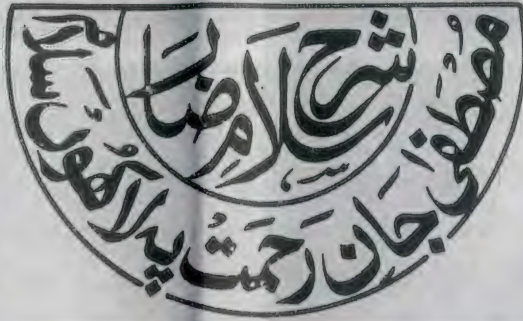 شرح سلامِ رضا
مصطفےٰ جانِ رَحمتْ پہ لاکھوں سَلام